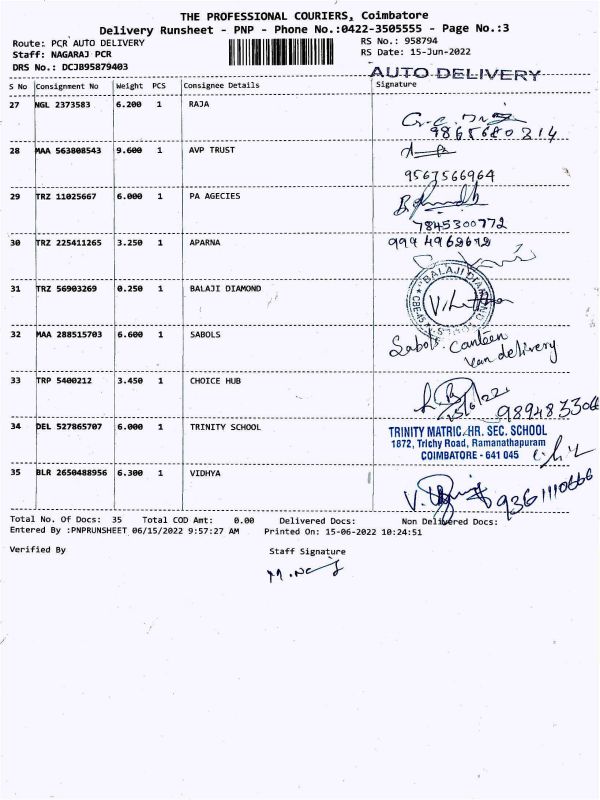 THE PROFESSIONAL COURIERS, Coimbatore
Delivery Runsheet - PNP - Phone No.:0422-3505555 - Page No.:3
Route: PCR AUTO DELIVERY RS No.: 958794
Staff: NAGARAJ PCR RS Date: 15-Jun-2022
DRS No.: DCJB95879403
AUTO DELIVERY
S No Consignment No Weight PCS Consignee Details Signature
27 NGL 2373583 6.200 1 RAJA
9865680314
28 MAA 563808543 9.600 1 AVP TRUST
9567566964
29 TRZ 11025667 6.000 1 PA AGECIES
7845300772
30 TRZ 225411265 3.250 1 APARNA
31 TRZ 56903269 0.250 1 BALAJI DIAMOND
BALAJI DIAMOND
32 MAA 288515703 6.600 1 SABOLS
Sabols. Canteen
Van delivery
33 TRP 5400212 3.450 1 CHOICE HUB
15/6/22
34 DEL 527865707 6.000 1 TRINITY SCHOOL
TRINITY MATRIC. HR. SEC. SCHOOL
1872, Trichy Road, Ramanathapuram
COIMBATORE - 641 045
35 BLR 2650488956 6.300 1 VIDHYA
9361110666
Total No. Of Docs: 35 Total COD Amt: 0.00 Delivered Docs: Non Delivered Docs:
Entered By :PNPRUNSHEET 06/15/2022 9:57:27 AM Printed On: 15-06-2022 10:24:51
Verified By Staff Signature